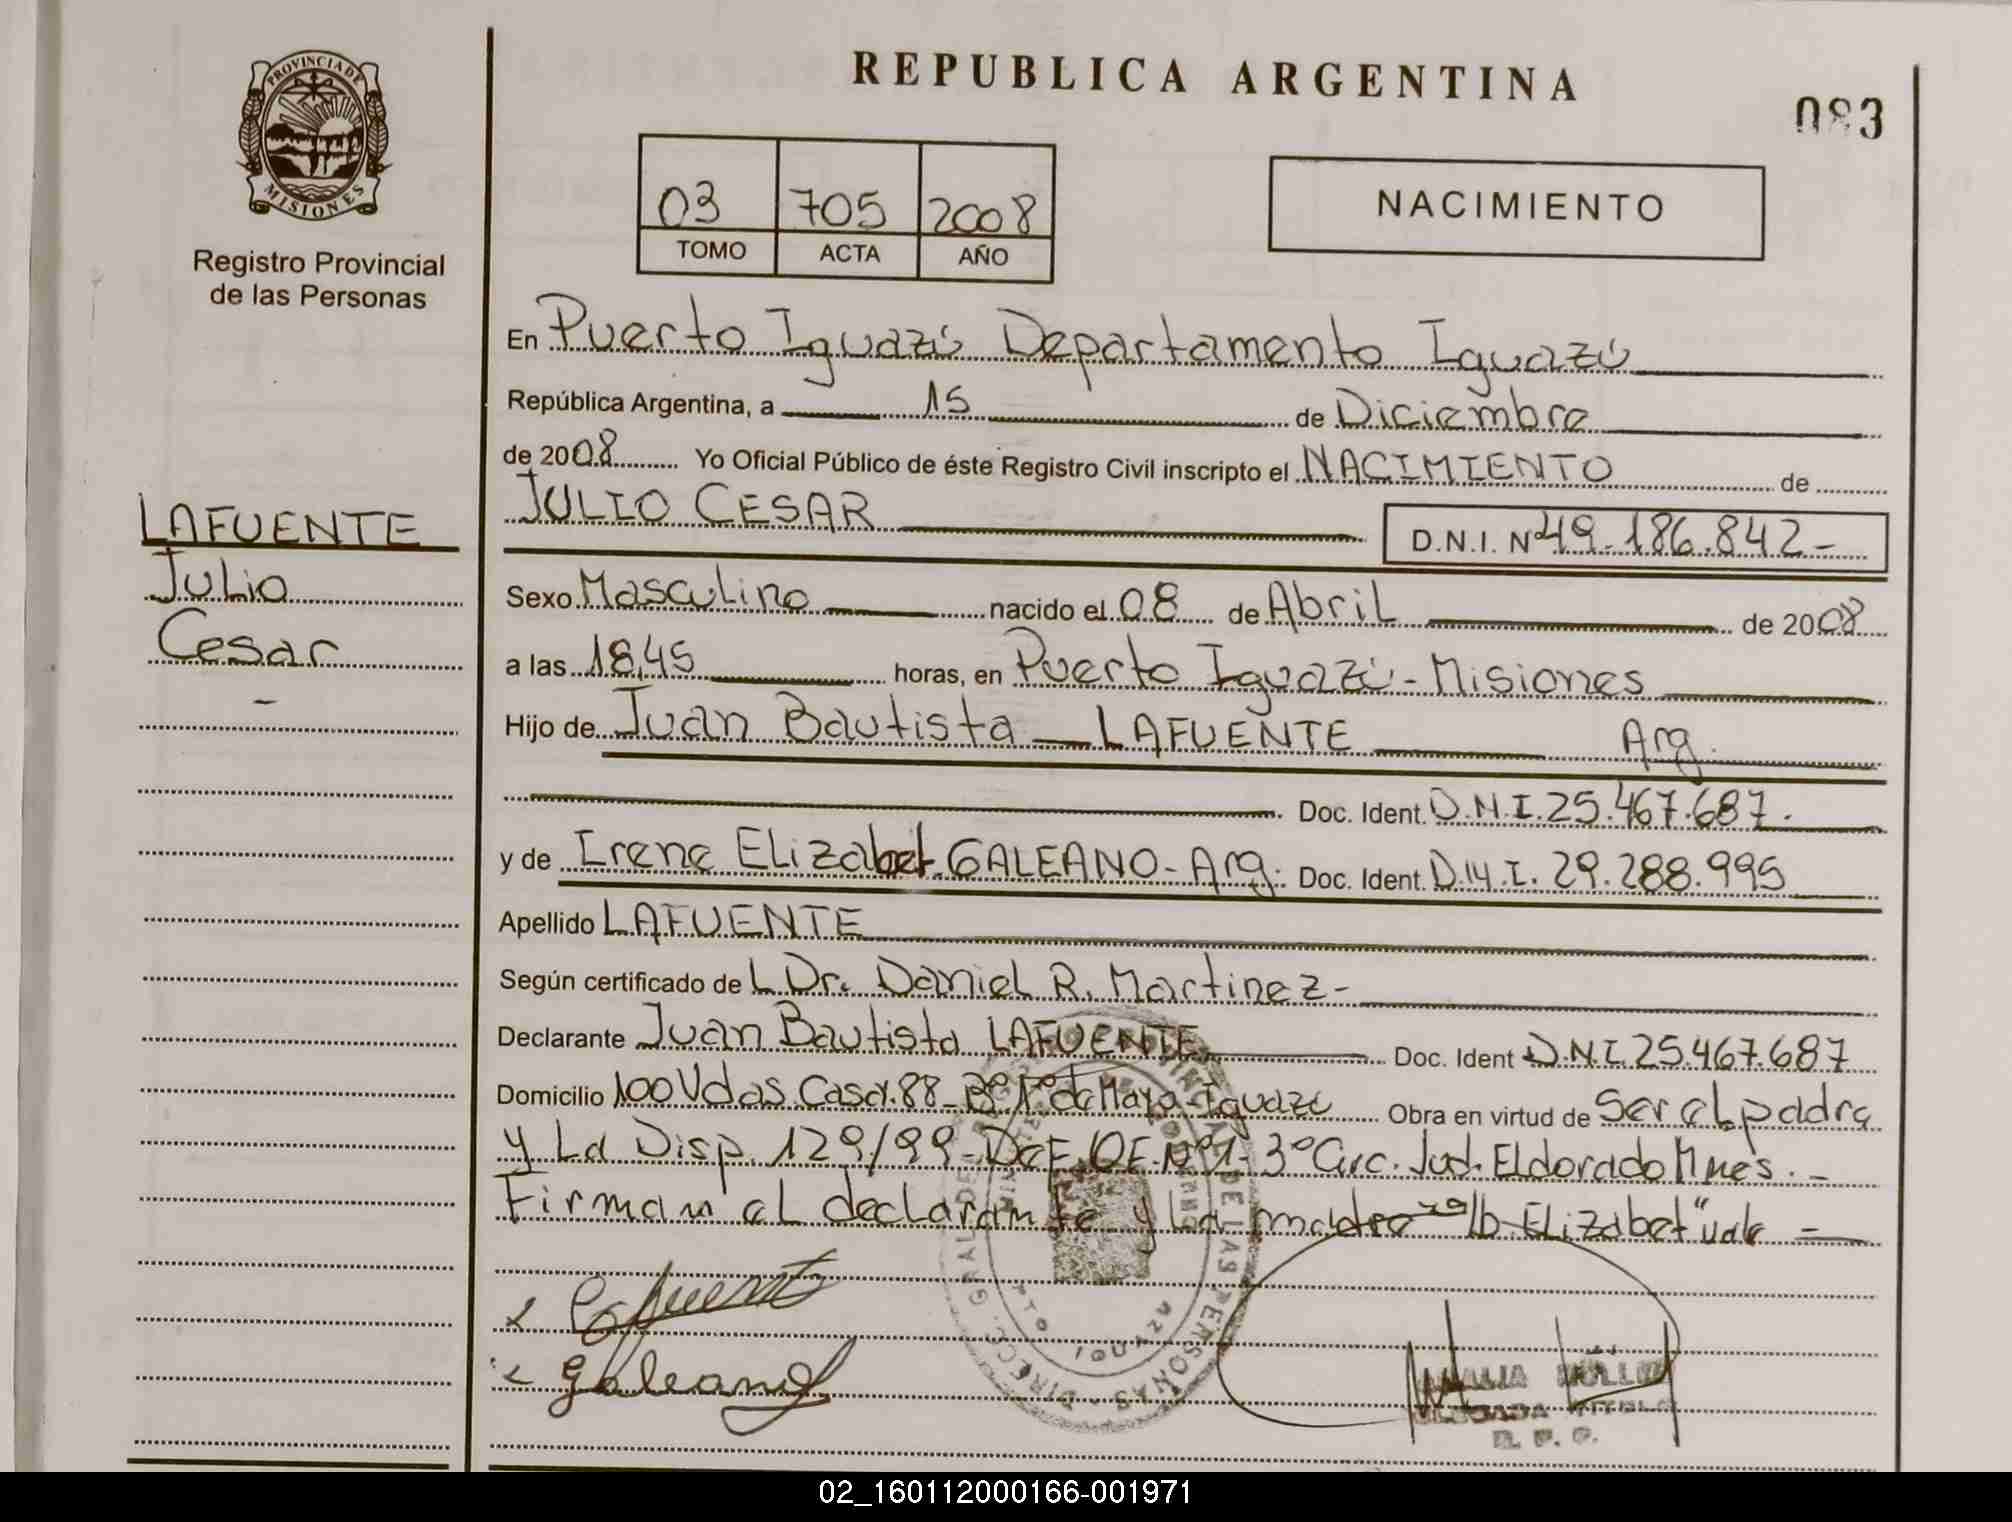 PROVINCIA DE
MISIONES
Registro Provincial
de las Personas
LAFUENTE
Julio
Cesar
-
REPUBLICA ARGENTINA
083
03 705 2008
TOMO ACTA AÑO
NACIMIENTO
En Puerto Iguazú Departamento Iguazú
República Argentina, a 15 de Diciembre
de 2008 Yo Oficial Público de éste Registro Civil inscripto el NACIMIENTO de
JULIO CESAR D.N.I. Nº 49.186.842-
Sexo Masculino nacido el 08 de Abril de 2008
a las 18,45 horas, en Puerto Iguazú - Misiones
Hijo de Juan Bautista LAFUENTE Arg.
Doc. Ident. D.N.I. 25.467.687.
y de Irene Elizabet GALEANO - Arg. Doc. Ident. D.N.I. 29.288.995
Apellido LAFUENTE
Según certificado de L Dr. Daniel R. Martinez -
Declarante Juan Bautista LAFUENTE Doc. Ident D.N.I. 25.467.687
Domicilio 100 Vdas. Casa. 88 - Bº 1º de Mayo - Iguazú Obra en virtud de Ser el padre
y La Disp. 129/99 - DEF. OF. Nº 1 - 3º Circ. Jud. Eldorado Mnes. -
Firman el declarante y La madre Elizabet" Vale -
Lafuente
Galeano
DE LAS PERSONAS
IGUAZU
R. P. P.
02_160112000166-001971